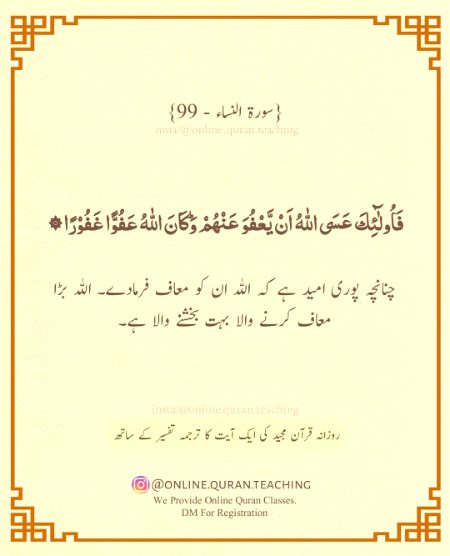 {سورۃ النساء - 99}
insta/@online.quran.teaching
فَاُولٰٓئِكَ عَسَى اللّٰهُ اَنْ يَّعْفُوَ عَنْهُمْ ؕ وَكَانَ اللّٰهُ عَفُوًّا غَفُوْرًا ۞
چنانچہ پوری امید ہے کہ اللہ ان کو معاف فرمادے۔ اللہ بڑا
معاف کرنے والا بہت بخشنے والا ہے۔
insta/@online.quran.teaching
روزانہ قرآن مجید کی ایک آیت کا ترجمہ تفسیر کے ساتھ
@ONLINE.QURAN.TEACHING
We Provide Online Quran Classes.
DM For Registration